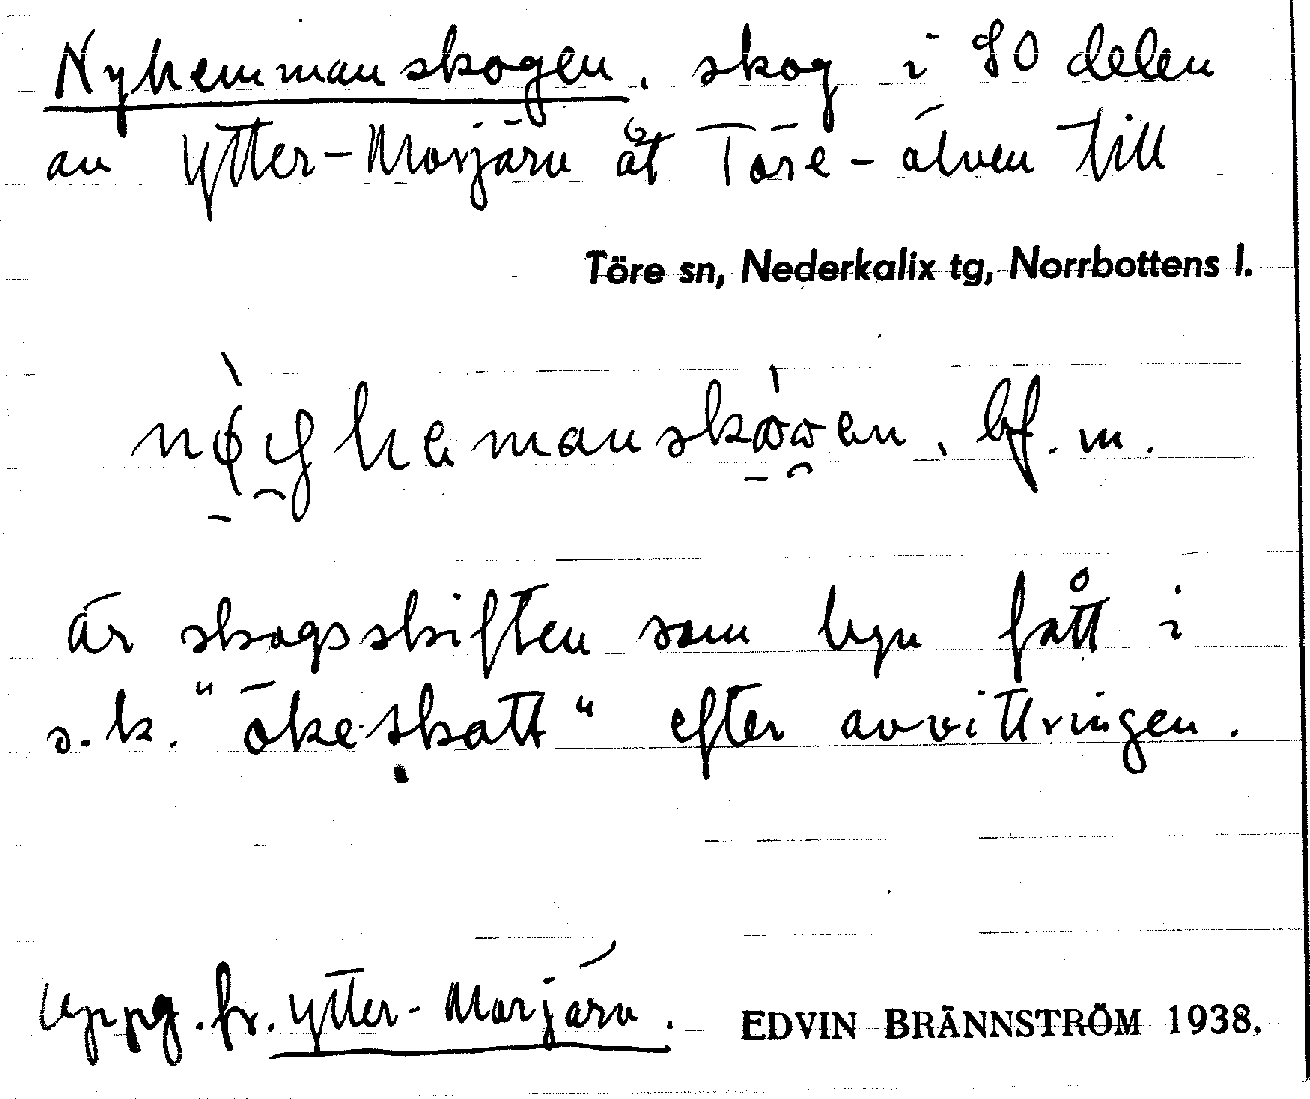 Nyhemmanskogen, skog i SO delen
av Ytter-Morjärv åt Töre-älven till
Töre sn, Nederkalix tg, Norrbottens l.
bf. m.
är skogsskiften som byn fått i
s.k. "ökeskatt" efter avvittringen.
Uppg. fr. Ytter-Morjärv.
EDVIN BRÄNNSTRÖM 1938.